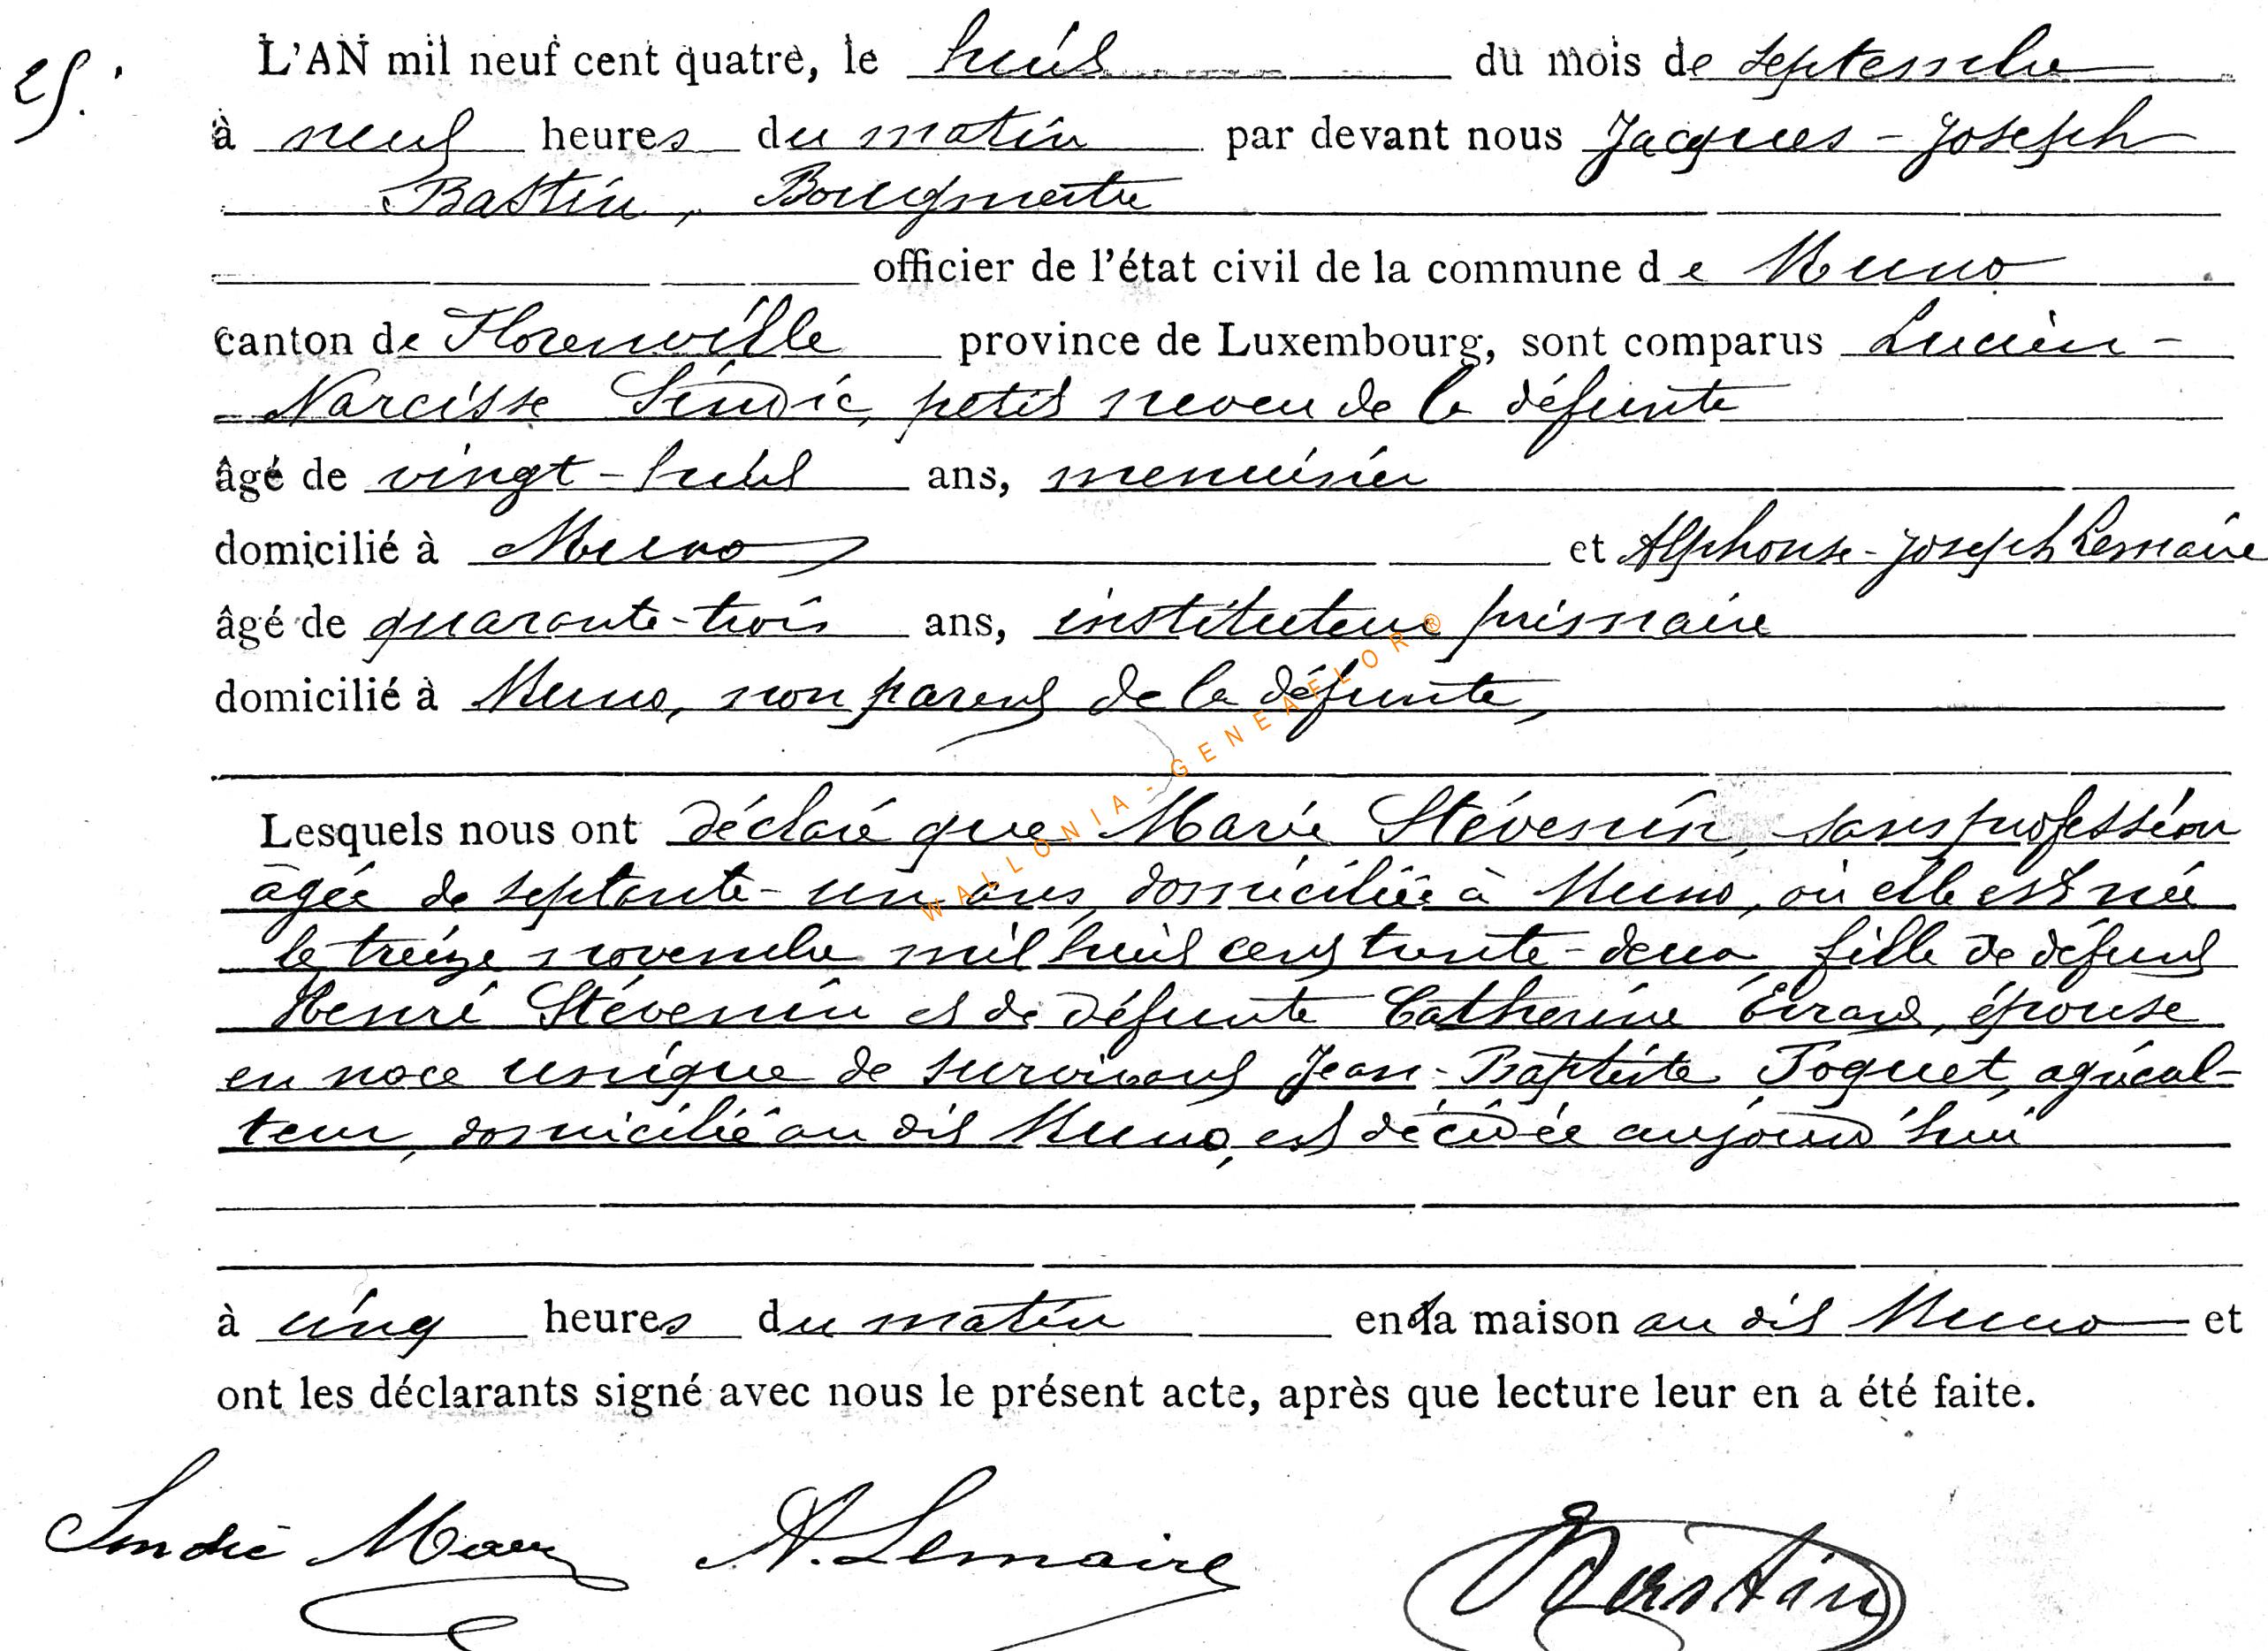 25.
L'AN mil neuf cent quatre, le huit du mois de septembre
à neuf heures du matin par devant nous Jacques-Joseph
Bastin, Bourgmestre
officier de l'état civil de la commune de Muno
canton de Florenville province de Luxembourg, sont comparus Lucien-
Narcisse Sindic, petit neveu de la défunte
âgé de vingt-huit ans, menuisier
domicilié à Muno et Alphonse-Joseph Lemaire
âgé de quarante-trois ans, instituteur primaire
domicilié à Muno, non parent de la défunte,
Lesquels nous ont déclaré que Marie Stévenin, sans profession
âgée de septante-un ans, domiciliée à Muno, où elle est née
le treize novembre mil huit cent trente-deux, fille de défunt
Henri Stévenin et de défunte Catherine Evrard, épouse
en noce unique de survivant Jean-Baptiste Poquet, agricul-
teur, domicilié au dit Muno, est décédée aujourd'hui
à cinq heures du matin en sa maison au dit Muno et
ont les déclarants signé avec nous le présent acte, après que lecture leur en a été faite.
Sindic A. Lemaire Bastin
WALLONIA-GENEAFLOR®